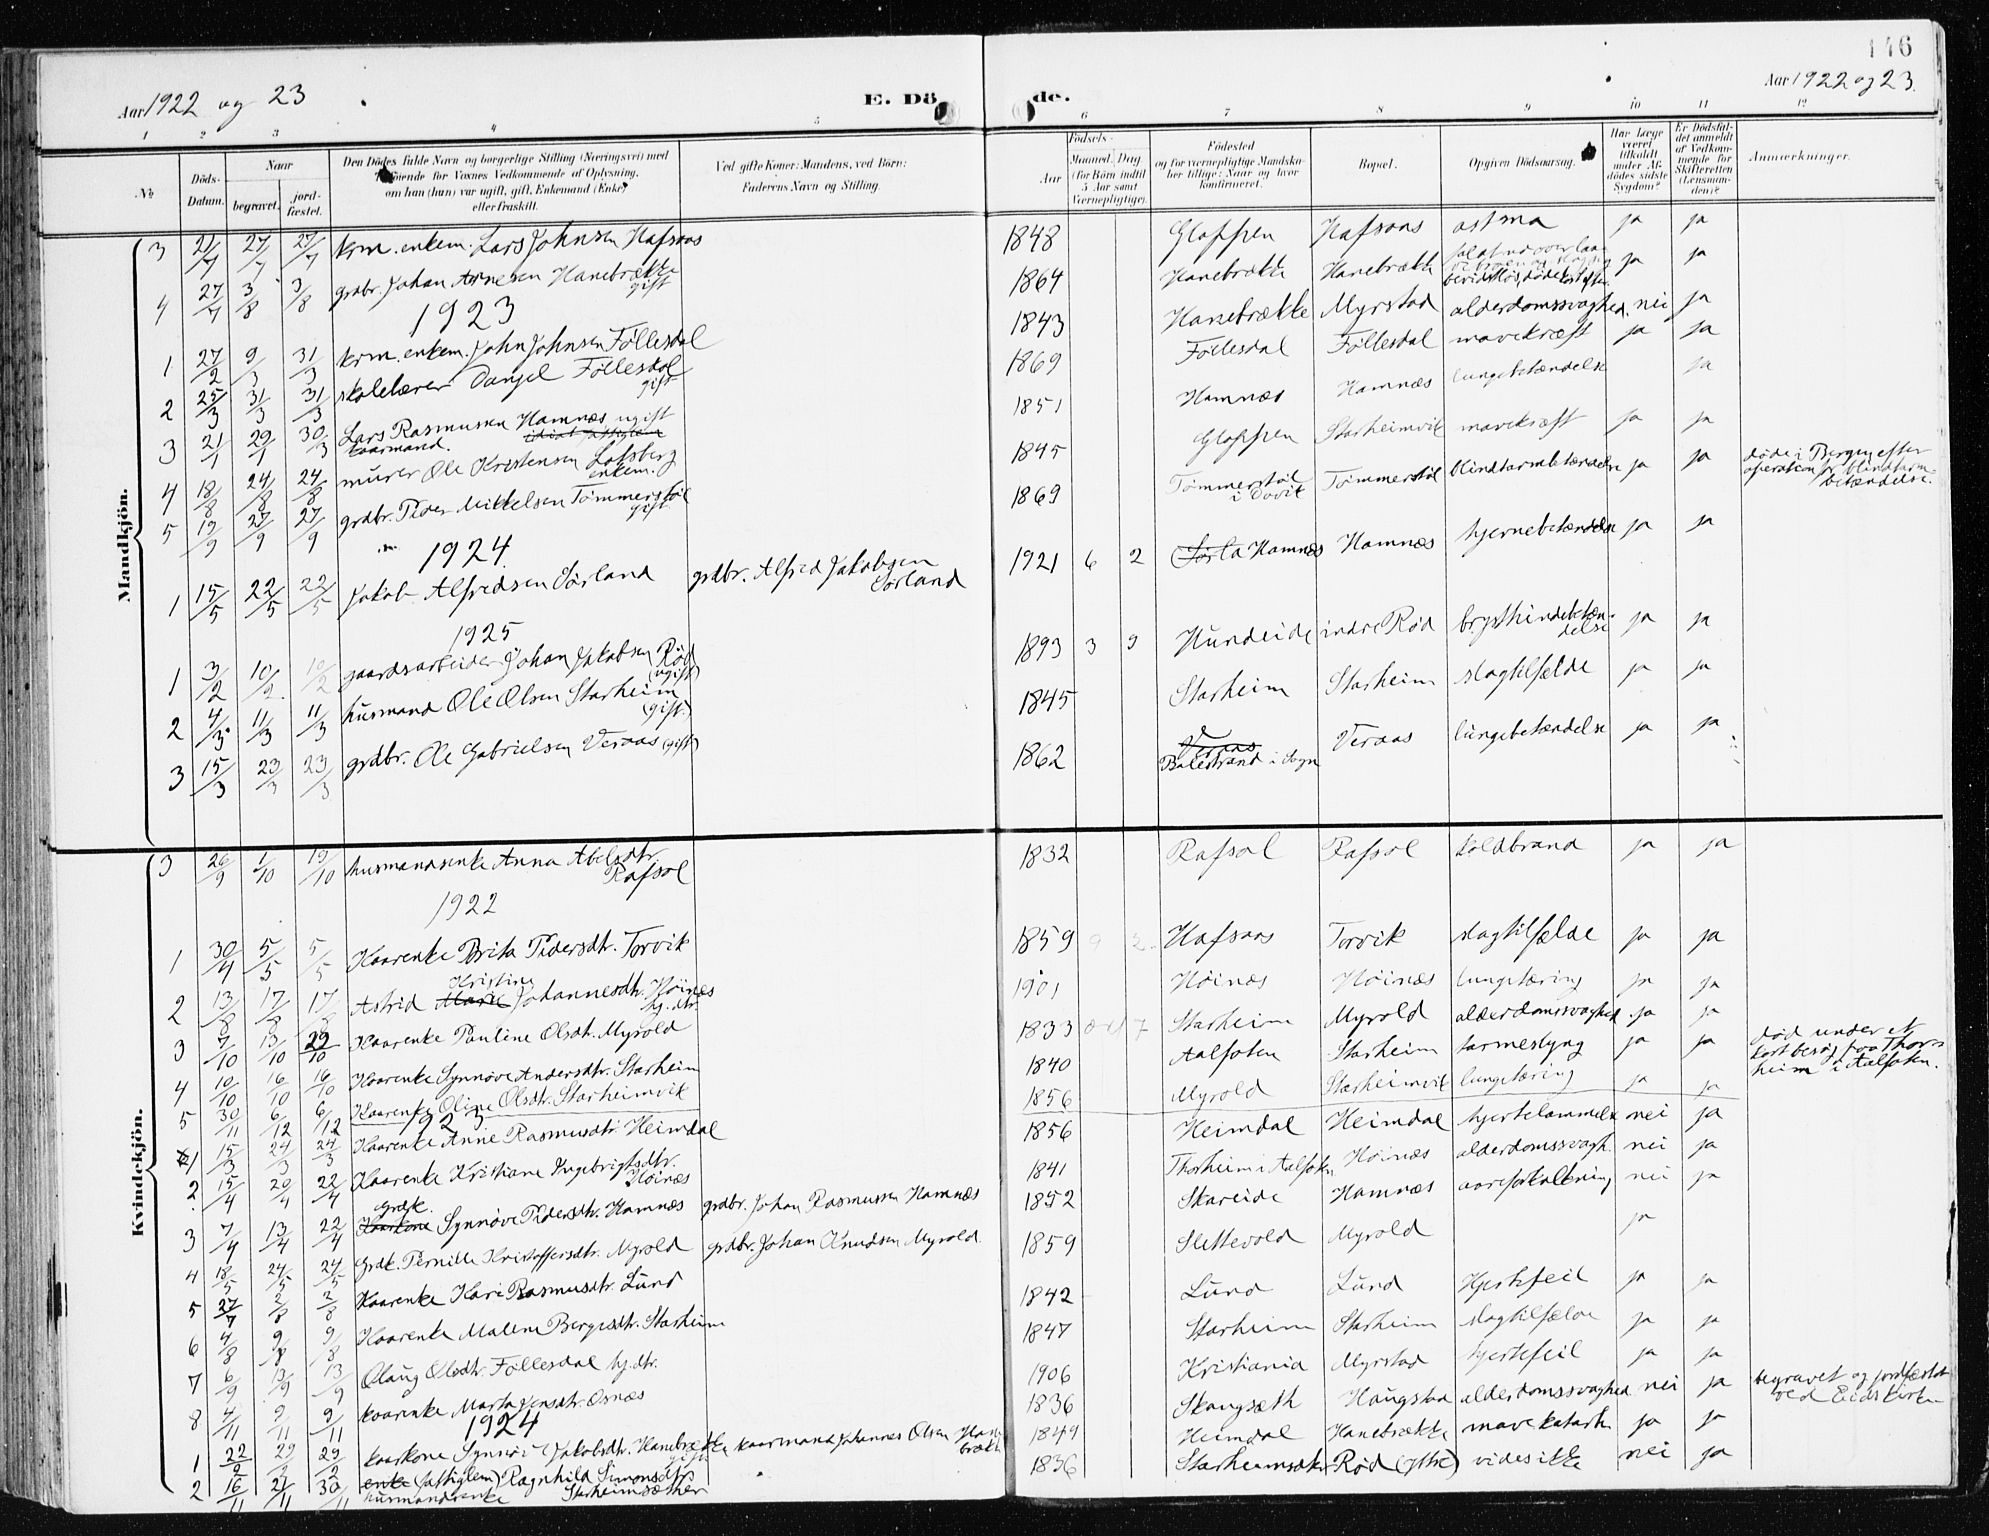 146
Aar 1922 og 23
E. Döde.
Aar 1922 og 23.
1 2 3 4 5 6 7 8 9 10 11 12
No
Döds-Datum.
Naar
begravet.
jord-fæstet.
Den Dödes fulde Navn og borgerlige Stilling (Næringsvei) med
Tilföiende for Voxnes Vedkommende af Oplysning,
om han (hun) var ugift, gift, Enkemand (Enke)
eller fraskilt.
Ved gifte Koner: Mandens, ved Börn:
Faderens Navn og Stilling.
Födsels-
Aar
Maaned. Dag
(for Börn indtil
5 Aar samt
Værnepligtige).
Födested
og for værnepligtige Mandska-
ber tillige: Naar og hvor
konfirmeret.
Bopæl.
Opgiven Dödsaarsag.
Har Læge været tilkaldt under Af-dödes sidste Sygdom?
Er Dödsfal-det anmeldt af Vedkom-mende for Skifteretten (Lensman-den)?
Anmærkninger.
Mandkjön.
3 21/7 27/7 27/7 krm. enkem. Lars Johnsen Hafsaas 1848 Gloppen Hafsaas astma ja ja
4 27/7 3/8 3/8 grdbr. Johan Arnesen Hanebrække gift 1864 Hanebrække Hanebrække ja ja
1923
1 27/2 9/3 31/3 krm. enkem. John Johnsen Föllesdal 1843 Hanebrække Myrstad alderdomssvaghed nei ja
2 25/3 31/3 31/3 skolelærer Danjel Föllesdal gift 1869 Föllesdal Föllesdal mavekræft ja ja
3 21/1 29/1 30/3 Lars Rasmusen Hamnæs ugift 1851 Hamnæs Hamnæs lungebetændelse ja
kaarmand.
4 18/8 24/8 24/8 murer Ole Kristensen Lotsberg enkem. 1845 Gloppen Starheimvik mavekræft ja ja
5 19/9 27/9 27/9 grdbr. Peder Mikkelsen Tömmerstöl gift 1869 Tömmerstöl i Davik Tömmerstöl blindtarmbetændelse ja ja döde i Bergen efter
operation for blindtarm-
betændelse.
1924.
1 15/5 22/5 22/5 Jakob Alfredsen Sörland grdbr. Alfred Jakobsen Sörland 1921 6 2 Hamnæs Hamnæs hjernebetændelse ja ja
1925
1 3/2 10/2 10/2 gaardsarbeider Johan Jakobsen Röd (ugift) 1893 3 9 Hundeide indre Röd brysthindebetæn-delse ja ja
2 4/3 11/3 11/3 husmand Ole Olsen Starheim (gift.) 1845 Starheim Starheim slagtilfælde ja ja
3 15/3 23/3 23/3 grdbr. Ole Gabrielsen Veraas (gift) 1862 Veraas Balestrand i Sogn Veraas lungebetændelse ja ja
Kvindekjön.
3 26/9 1/10 19/10 husmandsenke Anna Abelsdtr. Rafsol 1832 Rafsol Rafsol koldbrand ja ja
1922
1 30/4 5/5 5/5 Kaarenke Brita Pedersdtr. Torvik 1859 Hafsaas Torvik slagtilfælde ja ja
2 13/8 17/8 17/8 Astrid Marie Kristine Johannesdtr. Höinæs hj. dtr. 1901 Höinæs Höinæs lungetæring ja ja
3 7/10 13/10 29/10 Kaarenke Pauline Olsdtr. Myrold 1833 Starheim Myrold alderdomssvaghed ja ja
4 10/10 16/10 16/10 Kaarenke Synnöve Andersdtr. Starheim 1840 Aalfoten Starheim tarmeslyng ja ja död under et
kort besög paa Thors-
heim i Aalfoten.
5 30/11 6/12 6/12 Kaarenke Oline Olsdtr. Starheimvik 1856 Myrold Starheimvik lungetæring ja ja
1923
1 15/3 24/3 24/3 Kaarenke Anne Rasmusdtr. Heimdal 1856 Heimdal Heimdal hjertelammelse nei ja
2 15/4 20/4 22/4 Kaarenke Kristiane Ingebrigtsdtr. Höinæs 1841 Thorheim i Aalfoten Höinæs alderdomssvagh. nei ja
3 7/4 13/4 22/4 Grdk. Kaarkone Synnöve Pedersdtr. Hamnæs grdbr. Johan Rasmusen Hamnæs 1852 Skareide Hamnæs aareforkalkning nei ja
4 18/5 24/5 24/5 Grdk. Pernille Kristoffersdtr. Myrold grdbr. Johan Knudsen Myrold 1859 Slettevold Myrold ja
5 27/7 2/8 2/8 Kaarenke Kari Rasmusdtr. Lund 1842 Lund Lund Hjertefeil ja ja
6 4/8 9/8 9/8 Kaarenke Malene Bergesdtr. Starheim 1847 Starheim Starheim slagtilfælde ja ja
7 6/9 13/9 13/9 Olaug Olsdtr. Föllesdal hj. dtr. 1906 Kristiania Myrstad hjertefeil ja ja
8 4/11 9/11 9/11 Kaarenke Marta Jensdtr. Osnæs 1836 Skaugsæth Haugstad alderdomssvaghed nei ja begravet og jordfæstet
ved Eidskirken
1924
1 22/2 29/2 29/2 kaarkone Synnöve Jakobsdtr. Hanebrække gift kaarmand Johannes Olsen Hane-brække 1849 Heimdal Hanebrække mavekatarh ja ja
2 16/11 21/11 30/11 enke (fattiglem) Ragnhild Simonsdtr. 1836 Röd (ytre) vides ikke nei ja
husmandsenke Starheimsæther